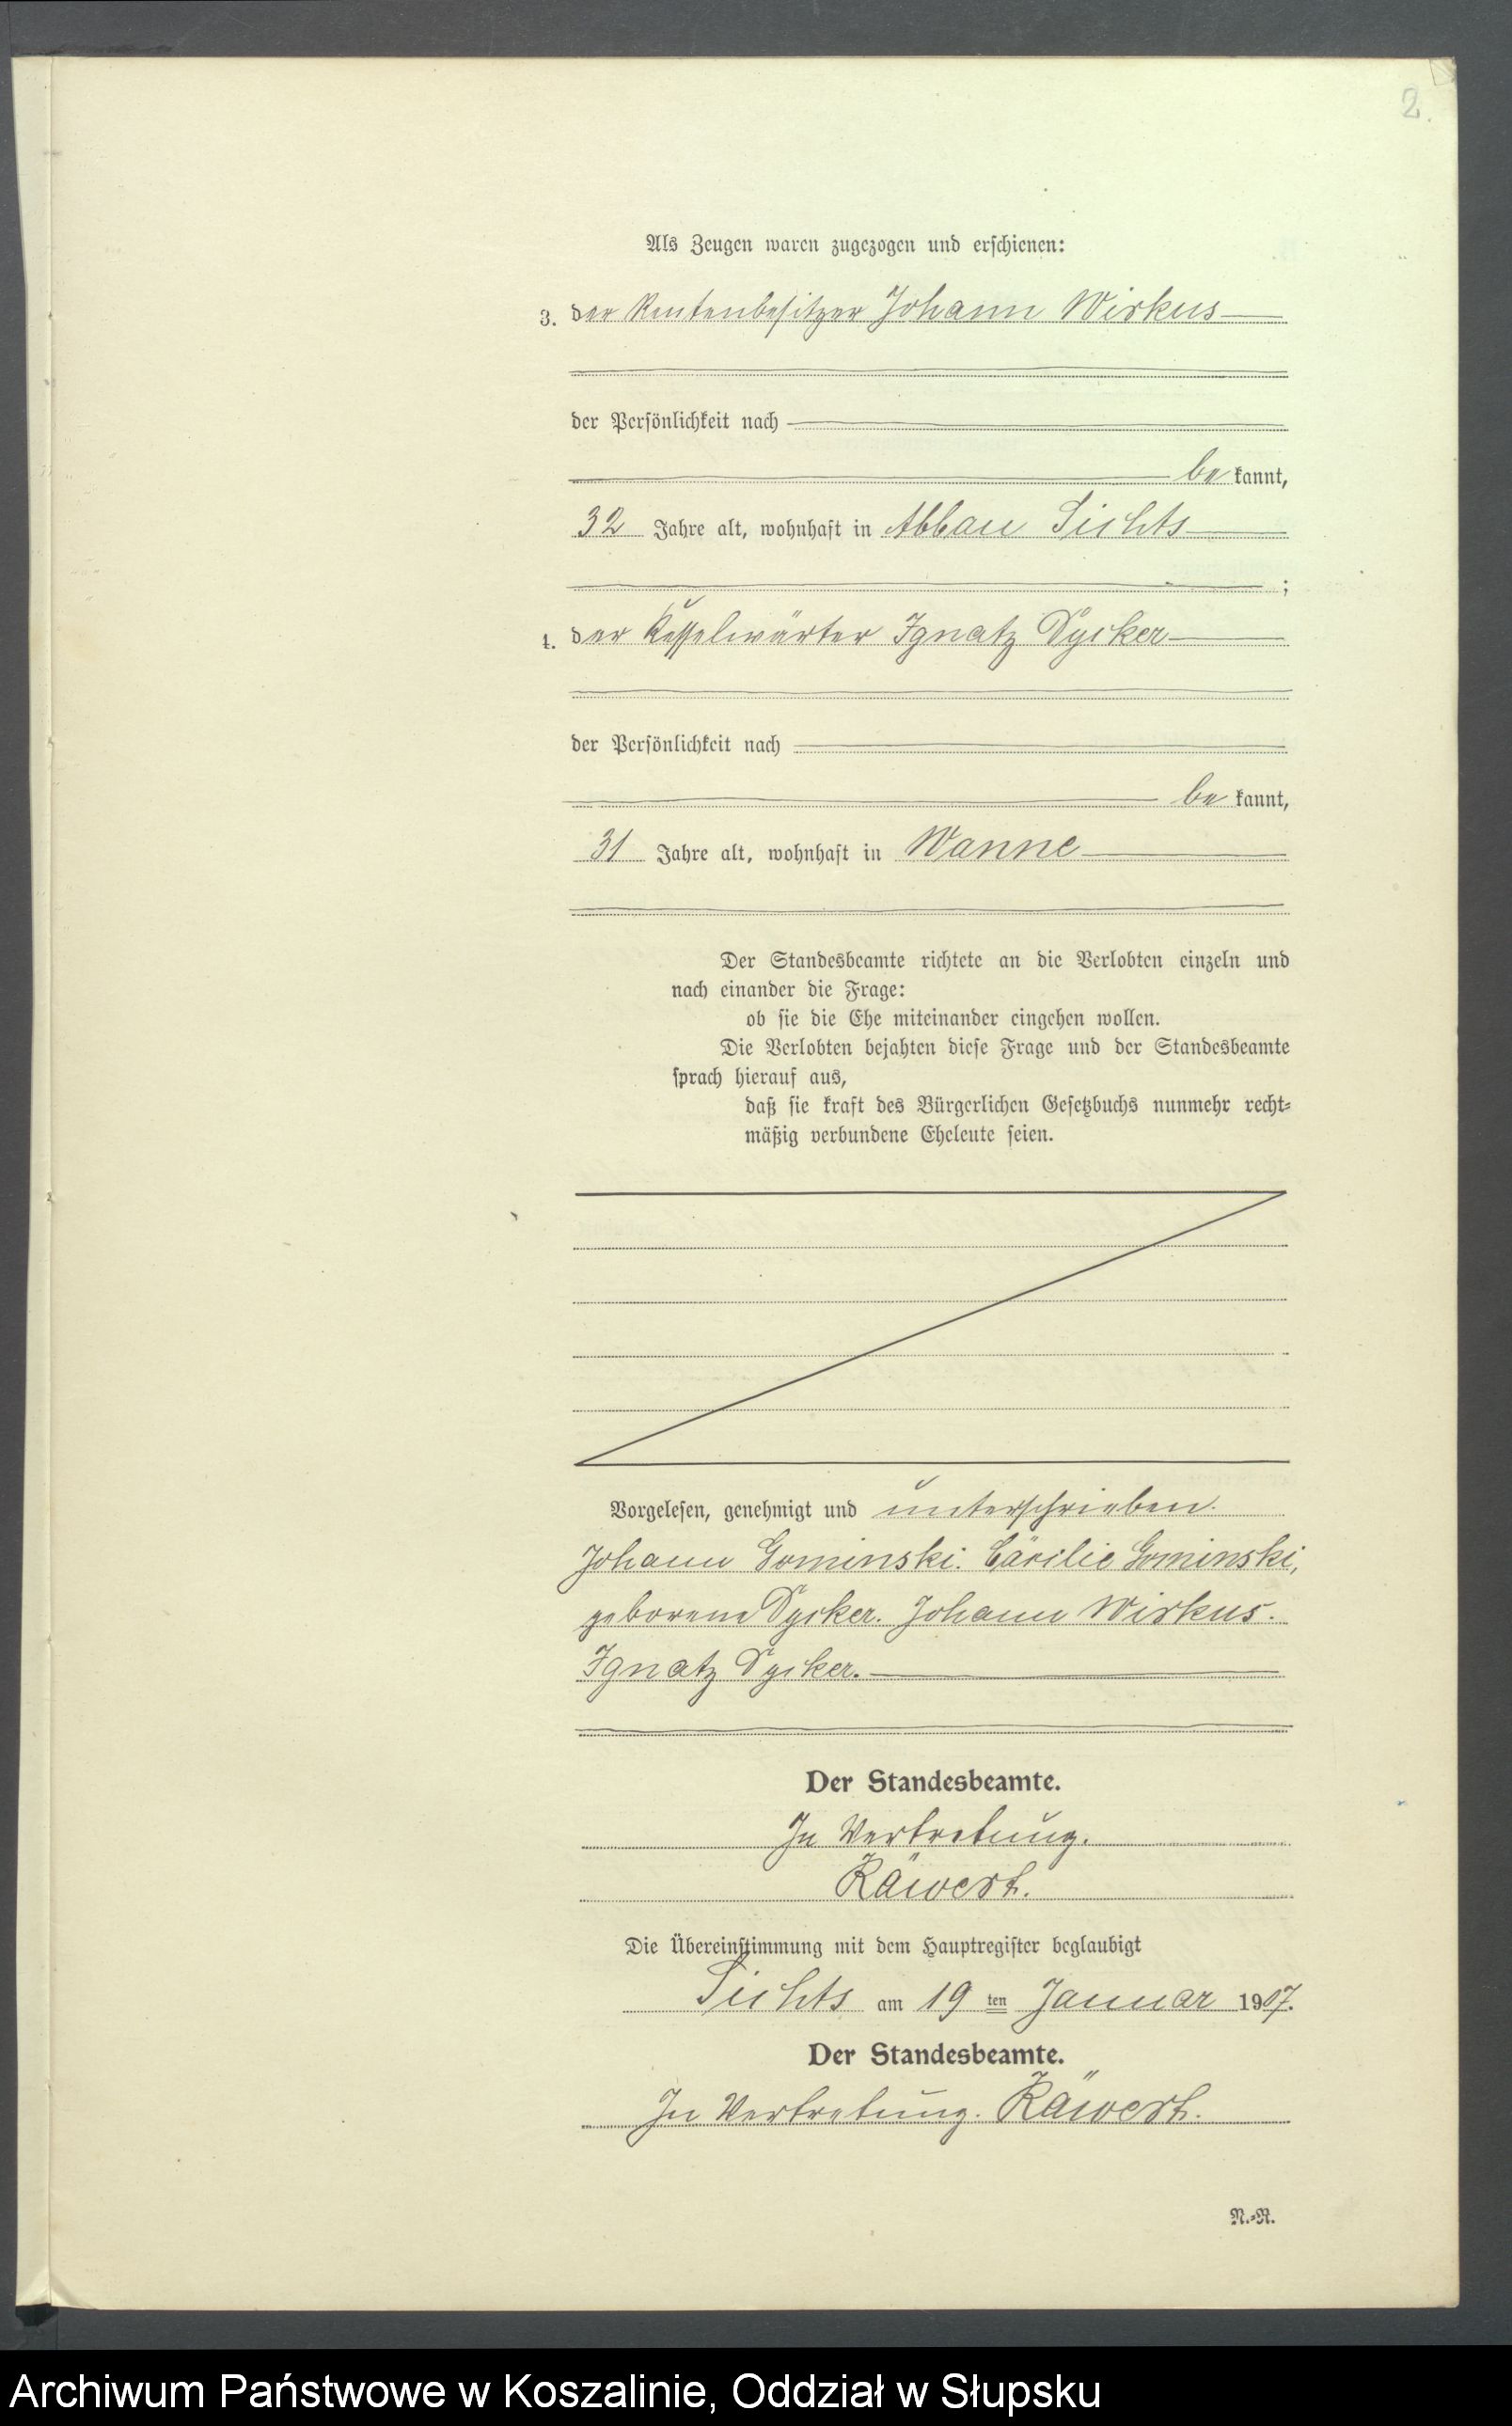 2.
Als Zeugen waren zugezogen und erschienen:
3. der Rentenbesitzer Johann Wirkus
der Persönlichkeit nach
be kannt,
32 Jahre alt, wohnhaft in Abbau Lichts
;
4. der Kesselwärter Ignatz Dysker
der Persönlichkeit nach
be kannt,
31 Jahre alt, wohnhaft in Wanne
Der Standesbeamte richtete an die Verlobten einzeln und
nach einander die Frage:
ob sie die Ehe miteinander eingehen wollen.
Die Verlobten bejahten diese Frage und der Standesbeamte
sprach hierauf aus,
daß sie kraft des Bürgerlichen Gesetzbuchs nunmehr recht-
mäßig verbundene Eheleute seien.
Vorgelesen, genehmigt und unterschrieben.
Johann Gominski. Cäcilie Gominski,
geborene Dysker. Johann Wirkus.
Ignatz Dysker.
Der Standesbeamte.
In Vertretung.
Die Übereinstimmung mit dem Hauptregister beglaubigt
am 19 ten Januar 1907.
Der Standesbeamte.
In Vertretung.
N.-R.
Archiwum Państwowe w Koszalinie, Oddział w Słupsku